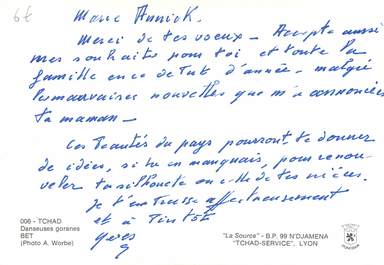 6€
Marie Annick.
Merci de tes voeux - Accepte aussi
mes souhaits pour toi et toute la
famille en ce début d'année, malgré
les mauvaises nouvelles que m'a annoncées
ta maman -
Ces beautés du pays pourront te donner
de idées, si tu en manquais, pour renou-
veler ta silhouette ou celle de tes nièces.
Je t'embrasse affectueusement
et à Tintot
Yves
006 - TCHAD
Danseuses goranes
BET
(Photo A. Worbe)
"La Source" - B.P. 99 N'DJAMENA
"TCHAD-SERVICE", LYON